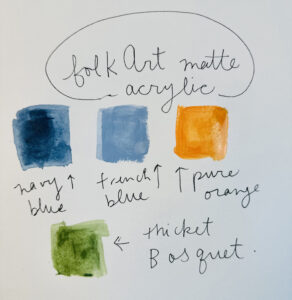 folkArt matte
acrylic
navy ↑ french ↑ ↑ pure
blue blue orange
← thicket
Bosquet.